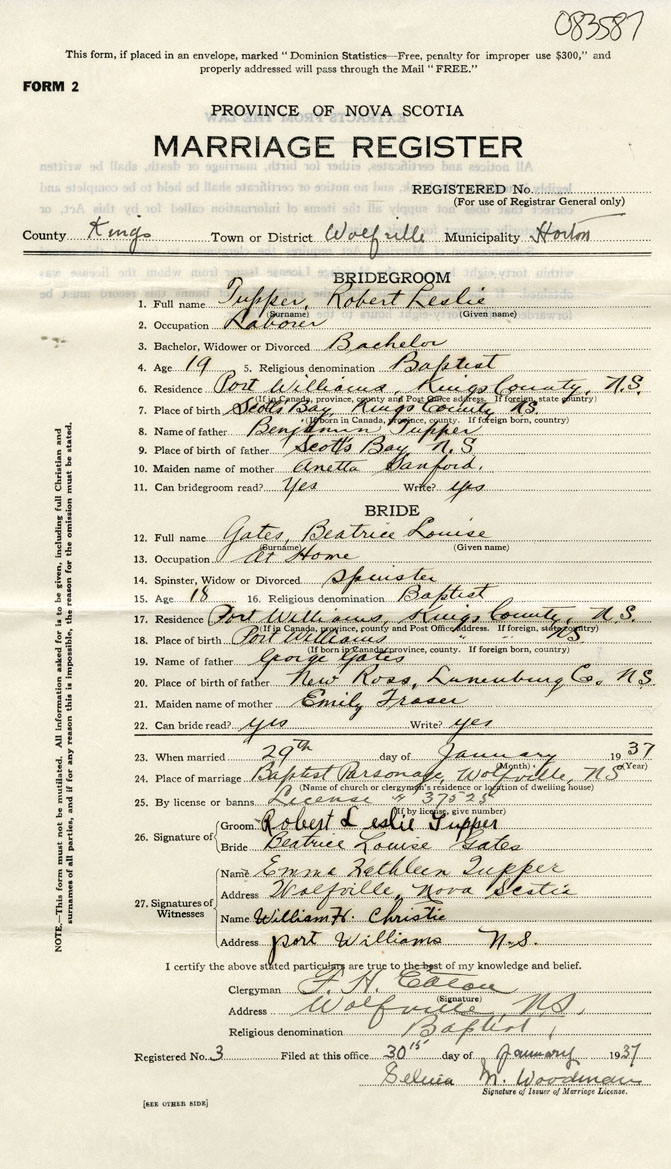 083587
This form, if placed in an envelope, marked "Dominion Statistics—Free, penalty for improper use $300," and
properly addressed will pass through the Mail "FREE."
FORM 2
PROVINCE OF NOVA SCOTIA
MARRIAGE REGISTER
REGISTERED No.
(For use of Registrar General only)
County Kings Town or District Wolfville Municipality Horton
BRIDEGROOM
1. Full name Tupper, Robert Leslie
(Surname) (Given name)
2. Occupation Laborer
3. Bachelor, Widower or Divorced Bachelor
4. Age 19 5. Religious denomination Baptist
6. Residence Port Williams, Kings County, N.S.
(If in Canada, province, county and Post Office address. If foreign, state country)
7. Place of birth Scotts Bay, Kings County N.S.
(If born in Canada, province, county. If foreign born, country)
8. Name of father Benjamin Tupper
9. Place of birth of father Scotts Bay, N.S
10. Maiden name of mother Anetta Sanford.
11. Can bridegroom read? Yes Write? yes
BRIDE
12. Full name Gates, Beatrice Louise
(Surname) (Given name)
13. Occupation At Home
14. Spinster, Widow or Divorced Spinster
15. Age 18 16. Religious denomination Baptist
17. Residence Port Williams, Kings County, N.S.
(If in Canada, province, county and Post Office address. If foreign, state country)
18. Place of birth Port Williams " " NS
(If born in Canada, province, county. If foreign born, country)
19. Name of father George Gates
20. Place of birth of father New Ross, Lunenburg Co. N.S.
21. Maiden name of mother Emily Fraser
22. Can bride read? yes Write? yes
23. When married 29th day of January 1937
(Month) (Year)
24. Place of marriage Baptist Parsonage, Wolfville, NS
(Name of church or clergyman's residence or location of dwelling house)
25. By license or banns License # 37525
(If by license, give number)
26. Signature of Groom Robert Leslie Tupper
Bride Beatrice Louise Gates
27. Signatures of Witnesses
Name Emma Kathleen Tupper
Address Wolfville, Nova Scotia
Name William H. Christie
Address port Williams N.S.
I certify the above stated particulars are true to the best of my knowledge and belief.
Clergyman F. H. Eaton
(Signature)
Address Wolfville, N.S.
Religious denomination Baptist
Registered No. 3 Filed at this office 30 day of January 1937
M. Woodman
Signature of Issuer of Marriage License.
[SEE OTHER SIDE]
NOTE.—This form must not be mutilated. All information asked for is to be given, including full Christian and
surnames of all parties, and if for any reason this is impossible, the reason for the omission must be stated.